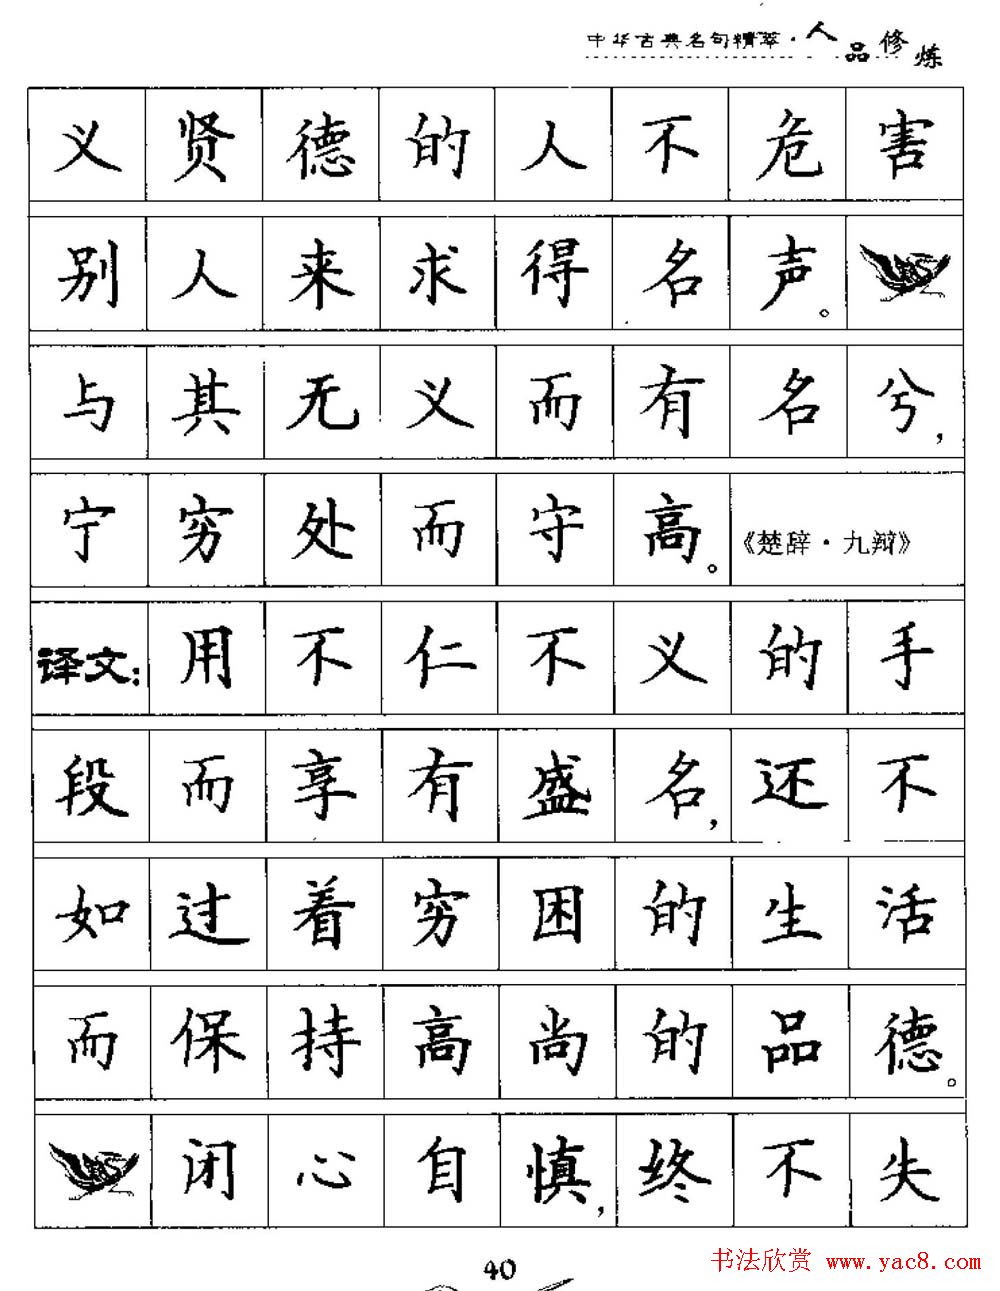 中华古典名句精萃·人品修炼
义贤德的人不危害
别人来求得名声。
与其无义而有名兮，
宁穷处而守高。《楚辞·九辩》
译文：用不仁不义的手
段而享有盛名，还不
如过着穷困的生活
而保持高尚的品德。
闭心自慎，终不失
40
书法欣赏 www.yac8.com